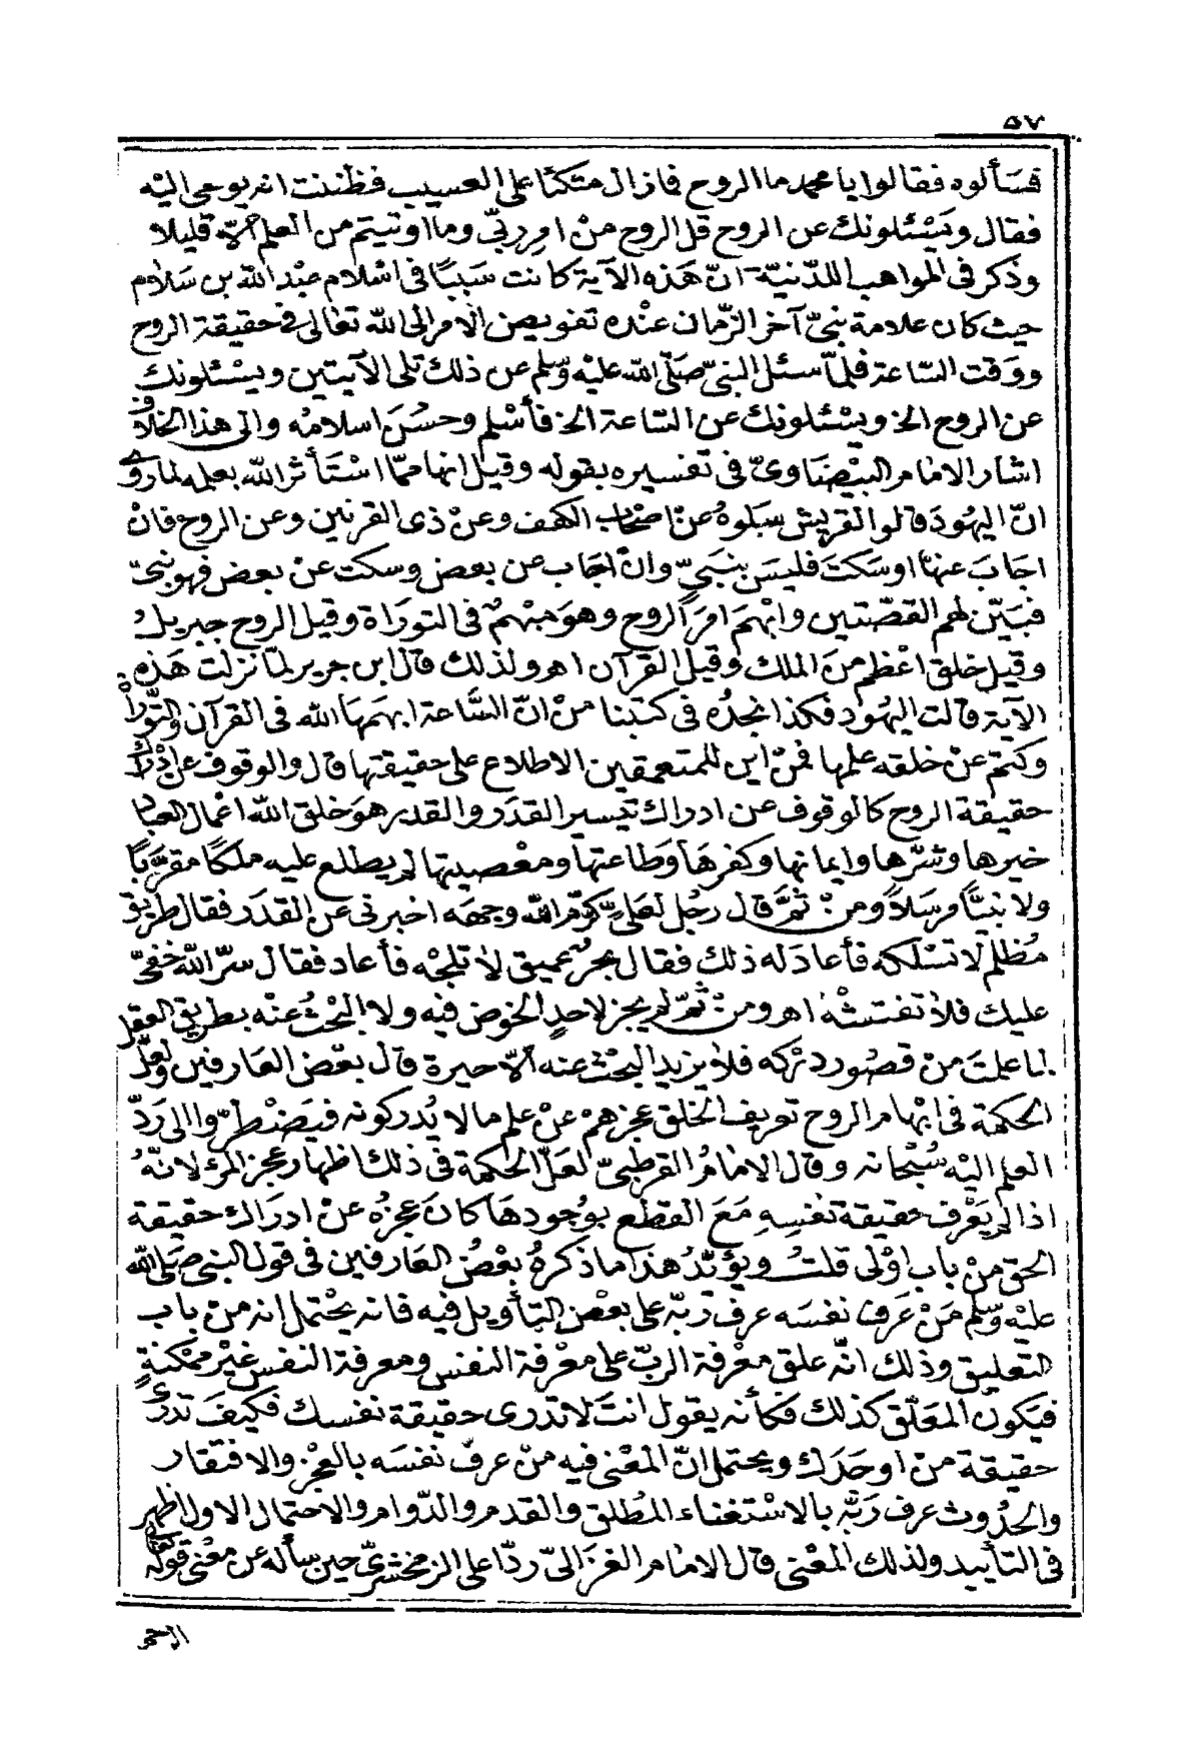 ٥٧
فسألوه فقالوا يا محمد ما الروح فما زال متكئا على العسيب فظننت انه يوحى اليه
فقال ويسئلونك عن الروح قل الروح من امر ربّي وما اوتيتم من العلم الّا قليلا
وذكر فى المواهب اللدّنيّة انّ هذه الآية كانت سببًا فى اسلام عبد الله بن سلام
حيث كان علامة نبىّ آخر الزّمان عنده تفويض الامر الى الله تعالى فى حقيقة الروح
ووقت السّاعة فلمّا سئل النبىّ صلّى الله عليه وسلّم عن ذلك تلى الآيتين ويسئلونك
عن الروح الخ ويسئلونك عن السّاعة الخ فأسلم وحسُن اسلامه والى هذا الخلاف
اشار الامام البيضاوىّ فى تفسيره بقوله وقيل انها ممّا استأثر الله بعلمه لما روى
انّ اليهود قالوا لقريش سلوه عن اصحاب الكهف وعن ذى القرنين وعن الروح فان
اجاب عنها او سكت فليس بنبىّ وان اجاب عن بعض وسكت عن بعض فهو نبىّ
فبيّن لهم القصّتين وابهم امر الروح وهو مبهم فى التوراة وقيل الروح جبريل
وقيل خلق اعظم من الملك وقيل القرآن اهـ ولذلك قال ابن جرير لمّا نزلت هذه
الآية قالت اليهود فكذا نجده فى كتبنا من انّ السّاعة ابهمها الله فى القرآن والتّوراة
وكتم عن خلقه علمها فمن اين للمتعمقين الاطلاع على حقيقتها قال والوقوف عن ادراك
حقيقة الروح كالوقوف عن ادراك تيسير القدر والقدر هو خلق الله اعمال العباد
خيرها وشرّها وايمانها وكفرها وطاعتها ومعصيتها لم يطلع عليه ملكًا مقرّبًا
ولا نبيًّا مرسلاً ومن ثمّ قال رجل لعلىّ كرّم الله وجهه اخبرنى عن القدر فقال طريق
مُظلم لا تسلكه فأعاد له ذلك فقال بحر عميق لا تلجه فأعاد فقال سرّ الله خفىّ
عليك فلا تفتشه اهـ ومن ثمّ لم يجز لاحدٍ الخوض فيه ولا البحث عنه بطريق العقل
لما علمت من قصور دركه فلا يزيد البحث عنه الّا حيرة قال بعض العارفين ولعلّ
الحكمة فى ابهام الروح تعريف الخلق عجزهم عن علم ما لا يُدركونه فيضطرّوا الى ردّ
العلم اليه سُبحانه وقال الامامُ القرطبىّ لعلّ الحكمة فى ذلك اظهار عجز المرء لانّهُ
اذا لم يعرف حقيقة نفسِهِ مع القطع بوجودها كان عجزه عن ادراك حقيقة
الحق من باب اولى قلتُ ويؤيّدُ هذا ما ذكره بعض العارفين فى قول النبى صلى الله
عليه وسلّم من عرف نفسه عرف ربّه على بعض التأويل فيه فانه يحتمل انه من باب
التعليق وذلك انّه علق معرفة الربّ على معرفة النفس ومعرفة النفس غير ممكنةٍ
فيكون المعلّق كذلك فكأنه يقول انت لا تدرى حقيقة نفسك فكيف تدرى
حقيقة من اوجدك ويحتمل انّ المعنى فيه من عرف نفسه بالعجز والافتقار
والحدُوث عرف ربّه بالاستغناء المطلق والقدم والدّوام والاحتمال الاول اظهر
فى التأييد ولذلك المعنى قال الامام الغزالىّ ردّا على الزمخشرىّ حين سأله عن معنى قوله تعالى
الرحمن